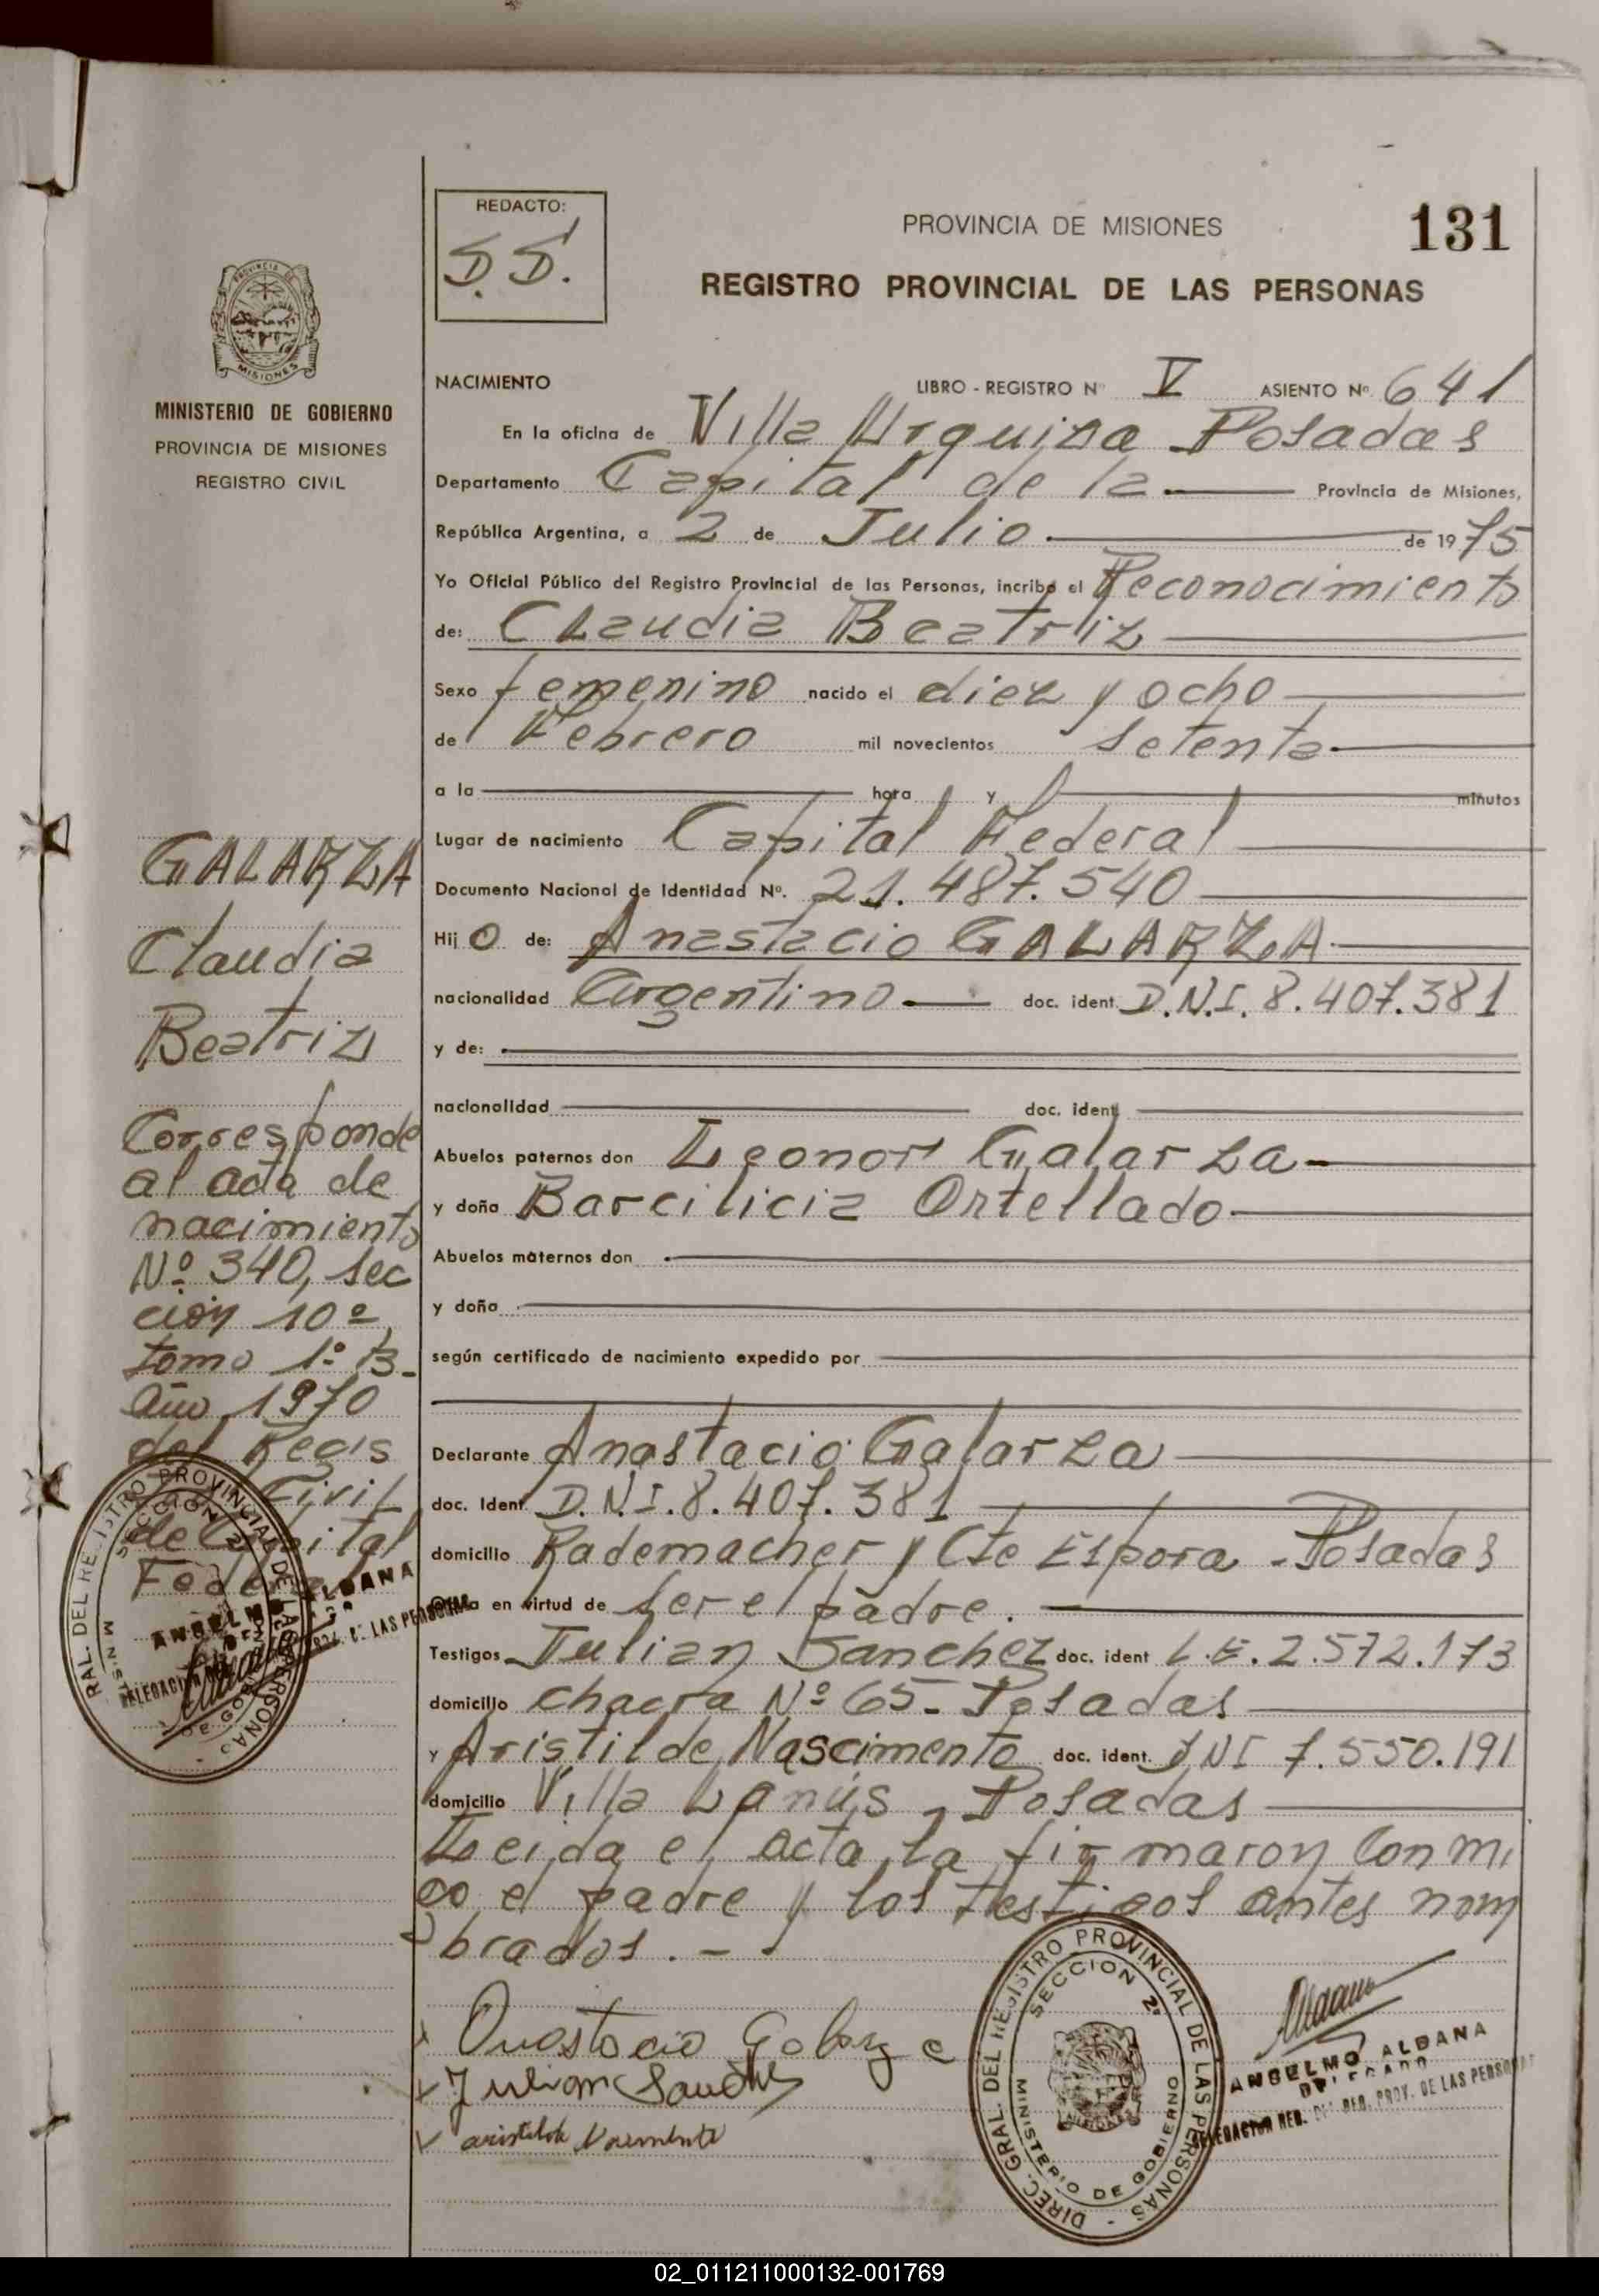 REDACTO:
S.S.
PROVINCIA DE MISIONES
131
REGISTRO PROVINCIAL DE LAS PERSONAS
PROVINCIA DE
MISIONES
MINISTERIO DE GOBIERNO
PROVINCIA DE MISIONES
REGISTRO CIVIL
NACIMIENTO LIBRO - REGISTRO Nº V ASIENTO Nº 641
En la oficina de Villa Urquiza Posadas
Departamento Capital de la Provincia de Misiones,
República Argentina, a 2 de Julio de 1975
Yo Oficial Público del Registro Provincial de las Personas, incribo el Reconocimiento
de: Claudia Beatriz
Sexo femenino nacido el diez y ocho
de Febrero mil novecientos setenta
a la hora y minutos
Lugar de nacimiento Capital Federal
Documento Nacional de Identidad Nº. 21.487.540
Hijo de: Anastacio GALARZA
nacionalidad Argentino doc. ident. D.N.I. 8.407.381
y de:
nacionalidad doc. ident.
Abuelos paternos don Leonor Galarza
y doña Barcilicia Ortellado
Abuelos maternos don
y doña
según certificado de nacimiento expedido por
Declarante Anastacio Galarza
doc. Ident. D.N.I. 8.407.381
domicilio Rademacher y Cte Espora - Posadas
en virtud de ser el padre.
Testigos Julian Sanchez doc. ident L.E. 2.572.173
domicilio chacra Nº 65 - Posadas
y Aristilde Nascimento doc. ident. DNI 7.550.191
domicilio Villa Lanús - Posadas
Leida el acta la firmaron conmi
go el padre y los testigos antes nom
brados. - -
GALARZA
Claudia
Beatriz
Corresponde
al acta de
nacimiento
Nº 340, sec
ción 10º
tomo 1º B-
año 1970
del Regis
Civil
de Capital
Federal
Anastacio Galarza
Julian Sanchez
DIREC. GRAL. DEL REGISTRO PROVINCIAL DE LAS PERSONAS
SECCION 2ª
MINISTERIO DE GOBIERNO
ANSELMO ALDANA
DELEGADO
DELEGACION REG. DEL REG. PROV. DE LAS PERSONAS
02_011211000132-001769